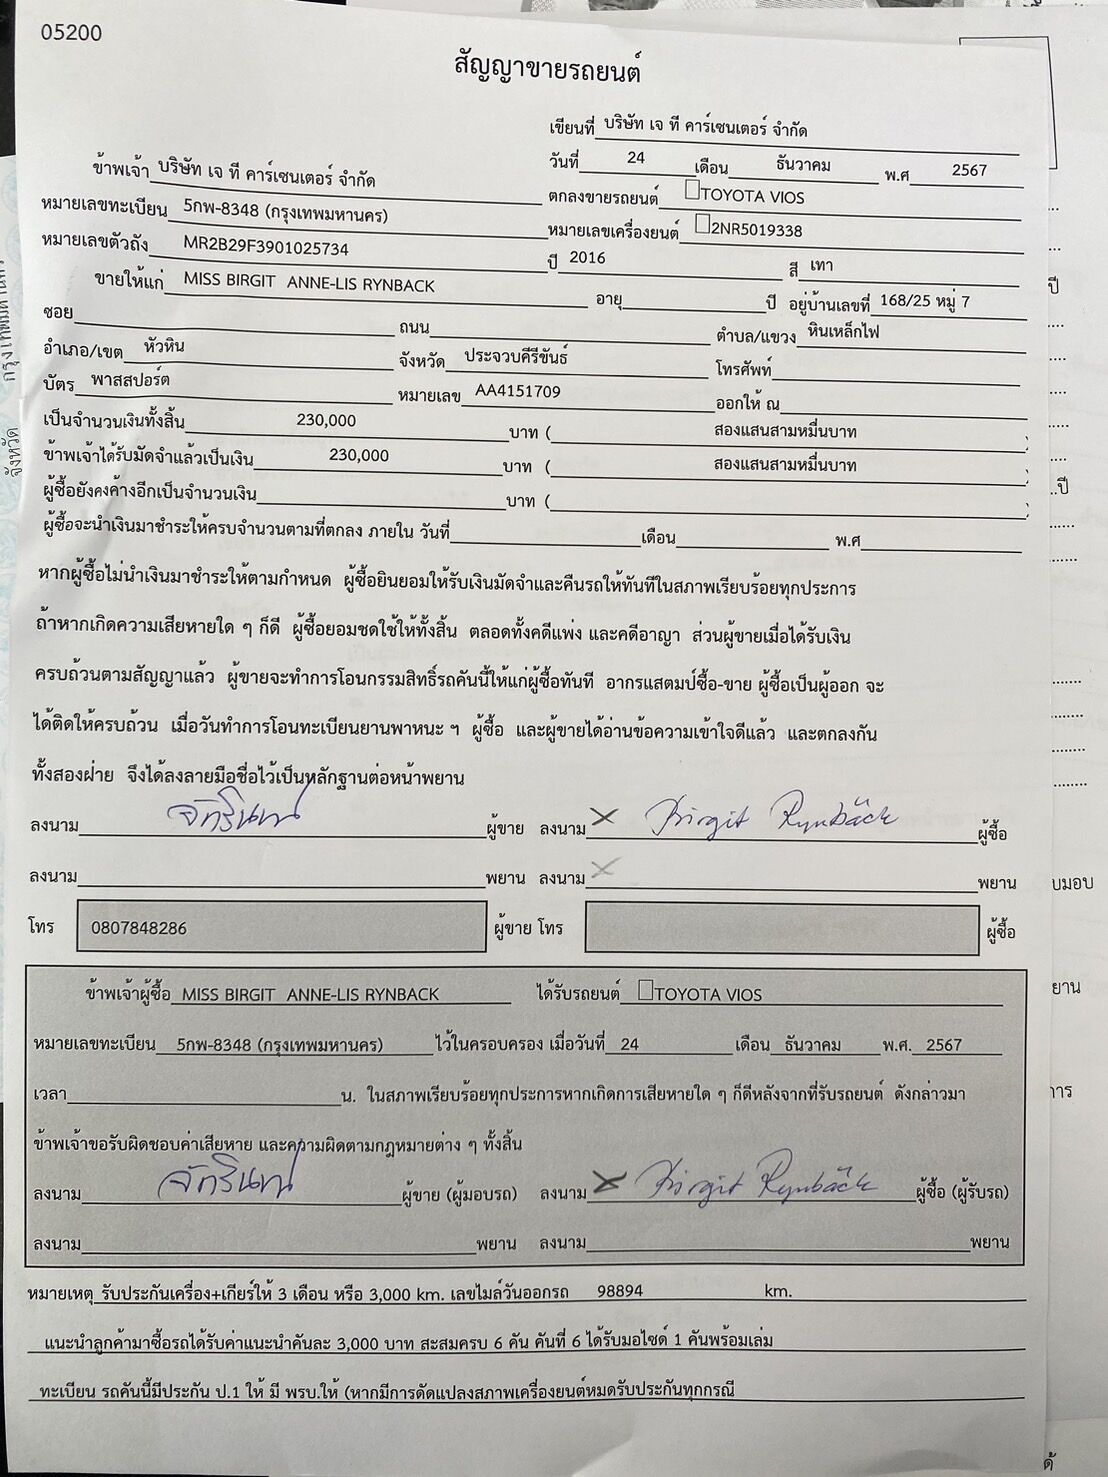 05200
สัญญาขายรถยนต์
เขียนที่ บริษัท เจ ที คาร์เซนเตอร์ จำกัด
วันที่ 24 เดือน ธันวาคม พ.ศ 2567
ข้าพเจ้า บริษัท เจ ที คาร์เซนเตอร์ จำกัด ตกลงขายรถยนต์ TOYOTA VIOS
หมายเลขทะเบียน 5กพ-8348 (กรุงเทพมหานคร) หมายเลขเครื่องยนต์ 2NR5019338
หมายเลขตัวถัง MR2B29F3901025734 ปี 2016 สี เทา
ขายให้แก่ MISS BIRGIT ANNE-LIS RYNBACK อายุ ปี อยู่บ้านเลขที่ 168/25 หมู่ 7
ซอย ถนน ตำบล/แขวง หินเหล็กไฟ
อำเภอ/เขต หัวหิน จังหวัด ประจวบคีรีขันธ์ โทรศัพท์
บัตร พาสสปอร์ต หมายเลข AA4151709 ออกให้ ณ
เป็นจำนวนเงินทั้งสิ้น 230,000 บาท ( สองแสนสามหมื่นบาท )
ข้าพเจ้าได้รับมัดจำแล้วเป็นเงิน 230,000 บาท ( สองแสนสามหมื่นบาท )
ผู้ซื้อยังคงค้างอีกเป็นจำนวนเงิน บาท ( )
ผู้ซื้อจะนำเงินมาชำระให้ครบจำนวนตามที่ตกลง ภายใน วันที่ เดือน พ.ศ
หากผู้ซื้อไม่นำเงินมาชำระให้ตามกำหนด ผู้ซื้อยินยอมให้รับเงินมัดจำและคืนรถให้ทันทีในสภาพเรียบร้อยทุกประการ
ถ้าหากเกิดความเสียหายใด ๆ ก็ดี ผู้ซื้อยอมชดใช้ให้ทั้งสิ้น ตลอดทั้งคดีแพ่ง และคดีอาญา ส่วนผู้ขายเมื่อได้รับเงิน
ครบถ้วนตามสัญญาแล้ว ผู้ขายจะทำการโอนกรรมสิทธิ์รถคันนี้ให้แก่ผู้ซื้อทันที อากรแสตมป์ซื้อ-ขาย ผู้ซื้อเป็นผู้ออก จะ
ได้ติดให้ครบถ้วน เมื่อวันทำการโอนทะเบียนยานพาหนะ ฯ ผู้ซื้อ และผู้ขายได้อ่านข้อความเข้าใจดีแล้ว และตกลงกัน
ทั้งสองฝ่าย จึงได้ลงลายมือชื่อไว้เป็นหลักฐานต่อหน้าพยาน
ลงนาม ผู้ขาย ลงนาม Birgit Rynbäck ผู้ซื้อ
ลงนาม พยาน ลงนาม พยาน
โทร 0807848286 ผู้ขาย โทร ผู้ซื้อ
ข้าพเจ้าผู้ซื้อ MISS BIRGIT ANNE-LIS RYNBACK ได้รับรถยนต์ TOYOTA VIOS
หมายเลขทะเบียน 5กพ-8348 (กรุงเทพมหานคร) ไว้ในครอบครอง เมื่อวันที่ 24 เดือน ธันวาคม พ.ศ. 2567
เวลา น. ในสภาพเรียบร้อยทุกประการหากเกิดการเสียหายใด ๆ ก็ดีหลังจากที่รับรถยนต์ ดังกล่าวมา
ข้าพเจ้าขอรับผิดชอบค่าเสียหาย และความผิดตามกฎหมายต่าง ๆ ทั้งสิ้น
ลงนาม ผู้ขาย (ผู้มอบรถ) ลงนาม Birgit Rynbäck ผู้ซื้อ (ผู้รับรถ)
ลงนาม พยาน ลงนาม พยาน
หมายเหตุ รับประกันเครื่อง+เกียร์ให้ 3 เดือน หรือ 3,000 km. เลขไมล์วันออกรถ 98894 km.
แนะนำลูกค้ามาซื้อรถได้รับค่าแนะนำคันละ 3,000 บาท สะสมครบ 6 คัน คันที่ 6 ได้รับมอไซด์ 1 คันพร้อมเล่ม
ทะเบียน รถคันนี้มีประกัน ป.1 ให้ มี พรบ.ให้ (หากมีการดัดแปลงสภาพเครื่องยนต์หมดรับประกันทุกกรณี